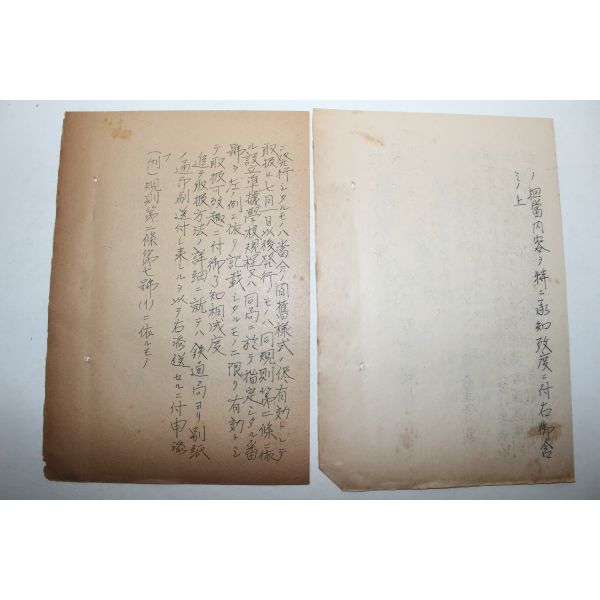 ノ担當内容ヲ特ニ承知致度ニ付右御含
ミノ上
ニ発行シタルモノハ當分ノ間舊様式ノ侭有効トシテ
取扱ヒ七月一日以後発行ノモノハ同規則第二條ニ依
ル設立準據學校規程又ハ同局ニ於テ指定シタル番
號ヲ左ノ例ニ依リ記載シタルモノニ限リ有効トシ
テ取扱可致趣ニ付御了知相成度
追テ取扱方法ノ詳細ニ就テハ鉄道局ヨリ別紙
ノ通印刷送付シ来シルヲ以テ右添送セルニ付申添
フ
(例)規則第二條第七號(イ)ニ依ルモノ